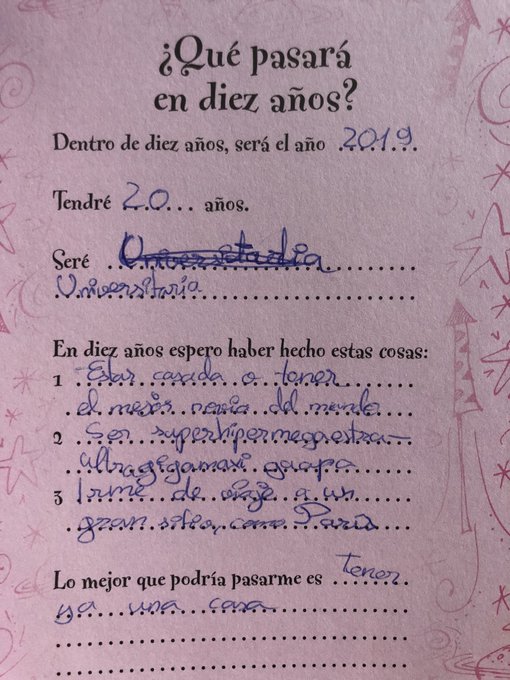 ¿Qué pasará
en diez años?
Dentro de diez años, será el año 2019
Tendré 20 años.
Seré Universitadia
Universitaria
En diez años espero haber hecho estas cosas:
1 Estar casada o tener
el mejor novio del mundo
2 Ser superhipermegaextra-
ultragigamaxi guapa
3 Irme de viaje a un
gran sitio, como París
Lo mejor que podría pasarme es tener
ya una casa